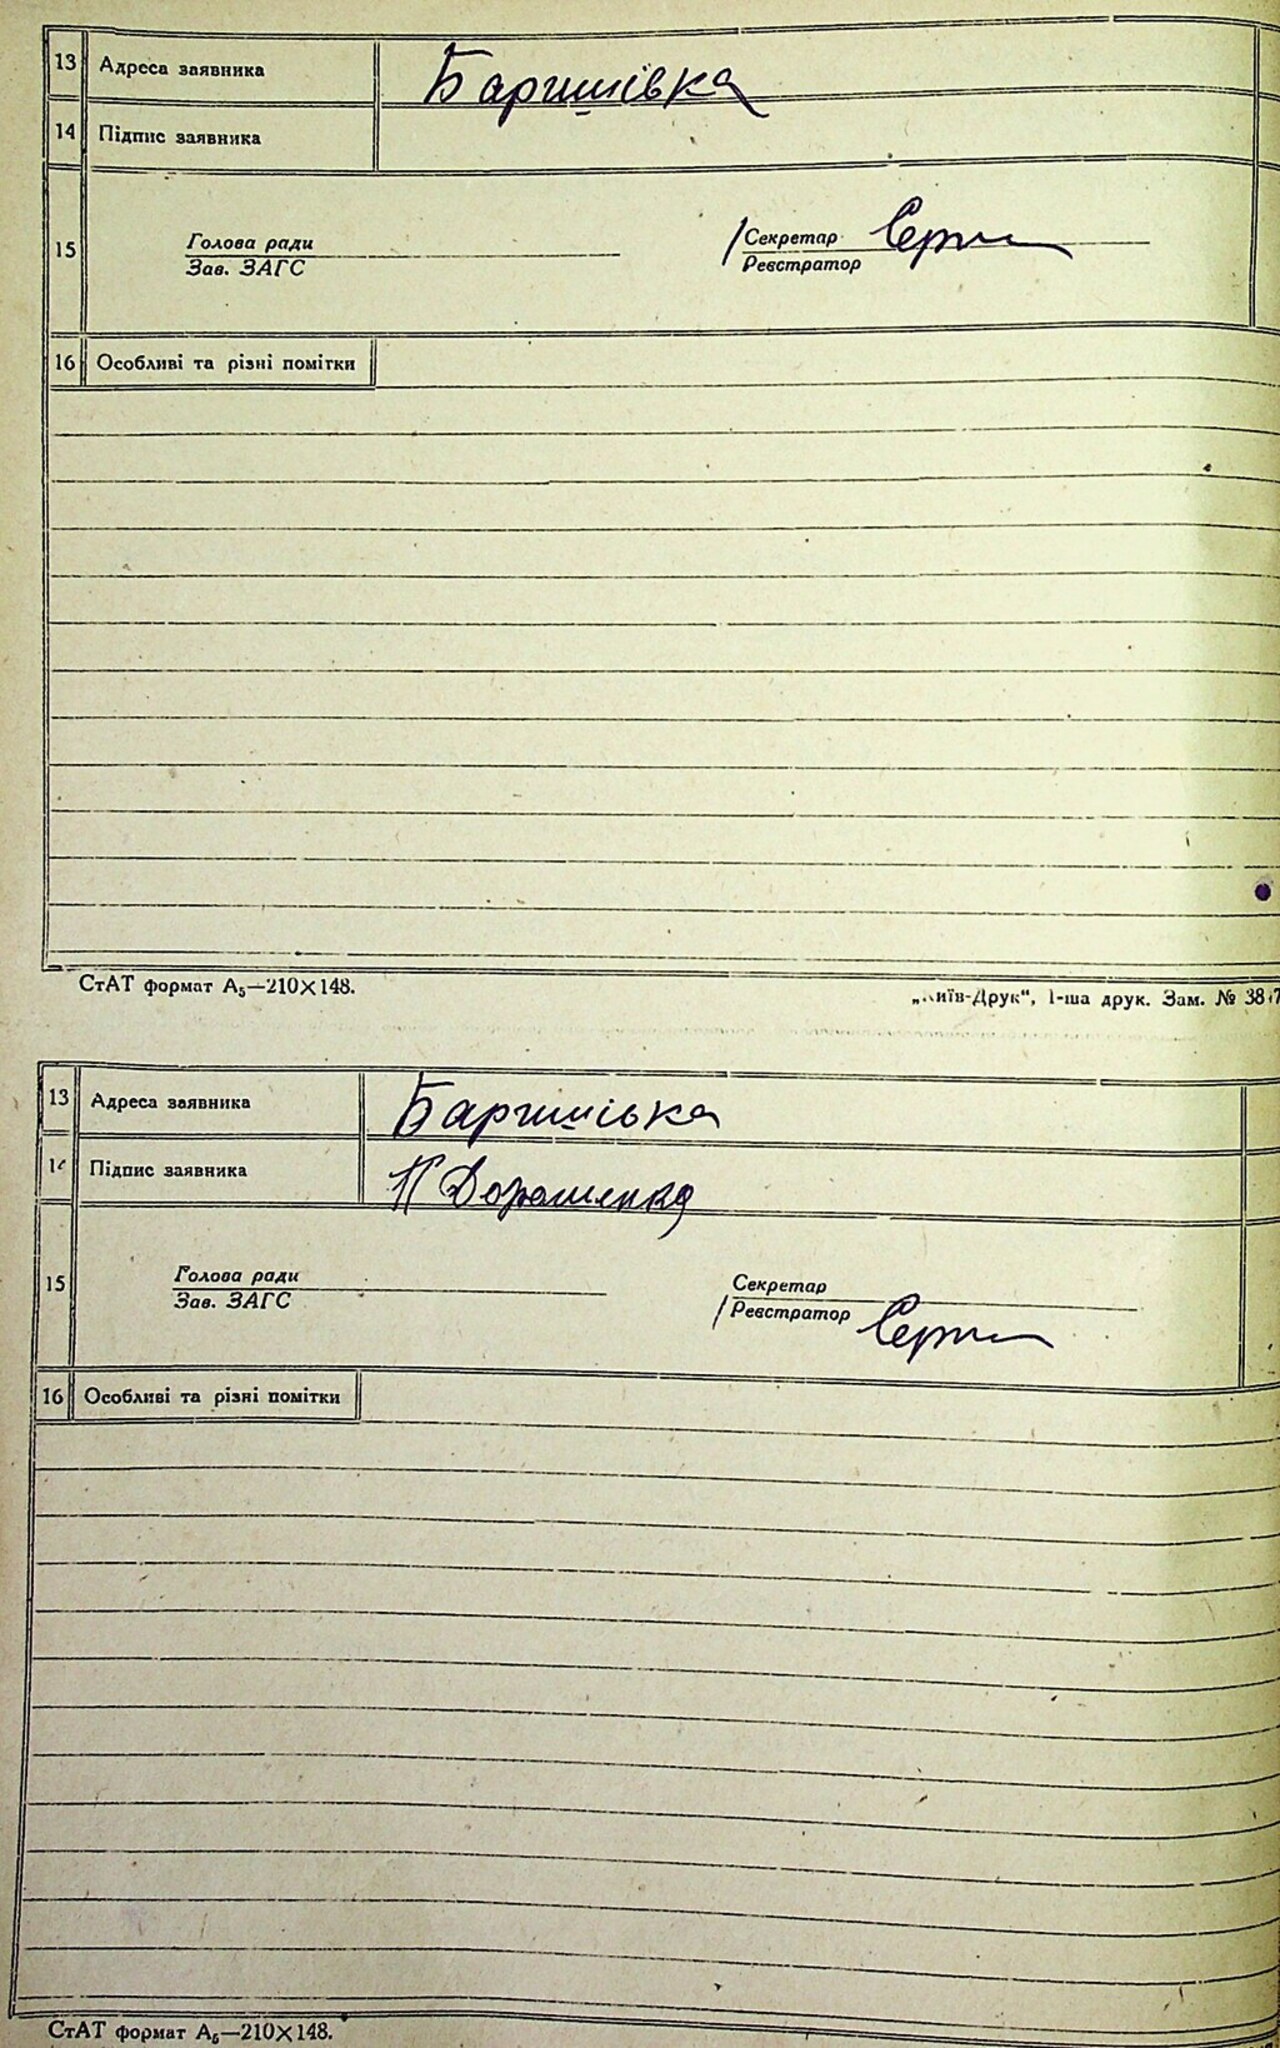 13 Адреса заявника Баришівка
14 Підпис заявника
15 Голова ради Секретар
Зав. ЗАГС Реєстратор
16 Особливі та різні помітки
СтАТ формат А5—210×148.
„Київ-Друк“, 1-ша друк. Зам. №
13 Адреса заявника Баришівка
14 Підпис заявника Дорошенко
15 Голова ради Секретар
Зав. ЗАГС Реєстратор
16 Особливі та різні помітки
СтАТ формат А5—210×148.